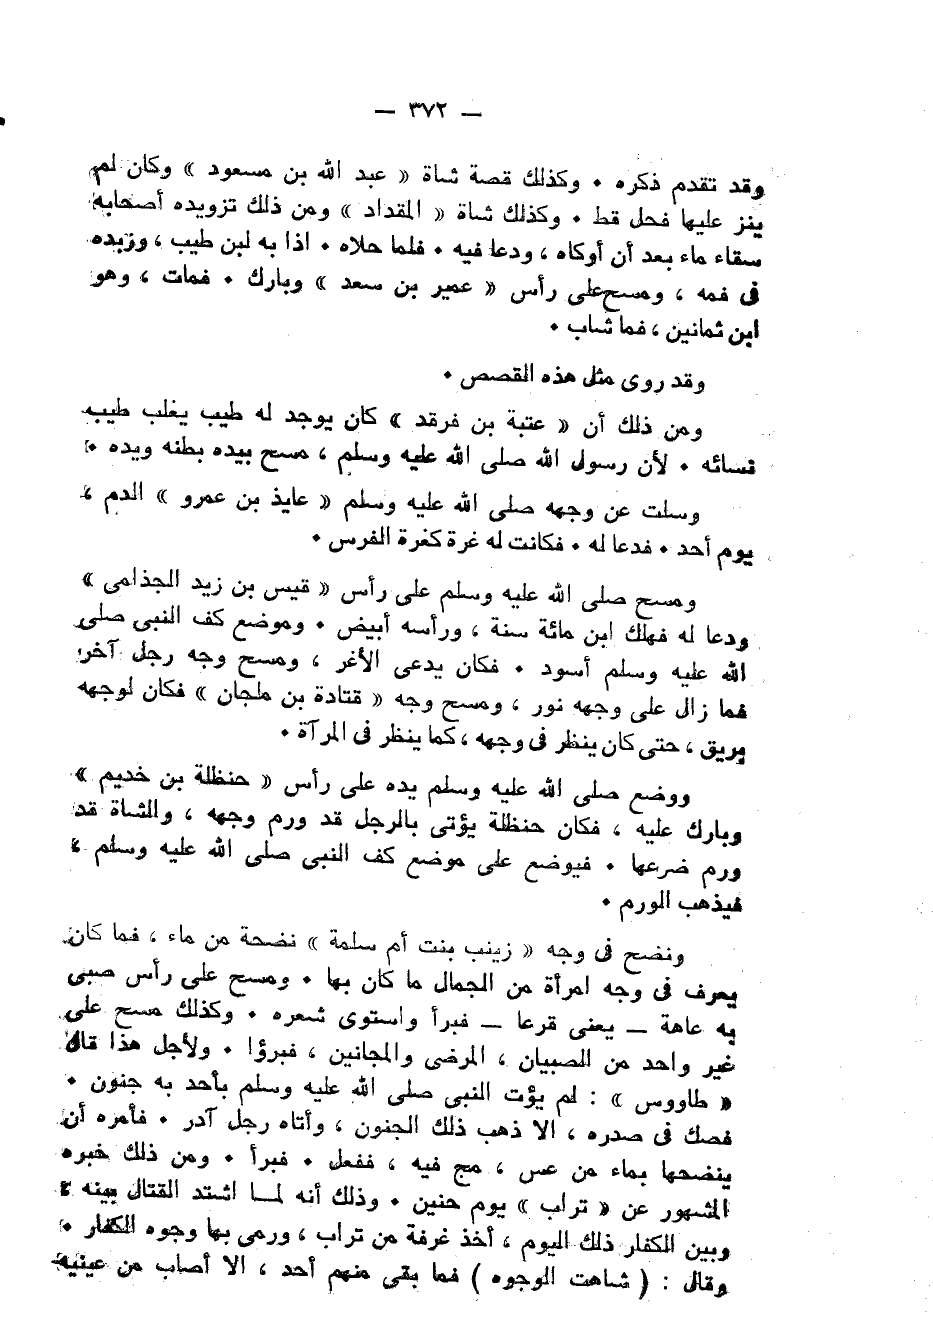 — ٣٧٢ —
وقد تقدم ذكره • وكذلك قصة شاة « عبد الله بن مسعود » وكان لم
ينز عليها فحل قط • وكذلك شاة « المقداد » ومن ذلك تزويده أصحابه
سقاء ماء بعد أن أوكاه ، ودعا فيه • فلما حلاه • اذا به لبن طيب ، وزبده
فى فمه ، ومسح على رأس « عمير بن سعد » وبارك • فمات ، وهو
ابن ثمانين ، فما شاب •
وقد روى مثل هذه القصص •
ومن ذلك أن « عتبة بن فرقد » كان يوجد له طيب يغلب طيب
نسائه • لأن رسول الله صلى الله عليه وسلم ، مسح بيده بطنه ويده •
وسلت عن وجهه صلى الله عليه وسلم « عايذ بن عمرو » الدم ،
يوم أحد • فدعا له • فكانت له غرة كغرة الفرس •
ومسح صلى الله عليه وسلم على رأس « قيس بن زيد الجذامى »
ودعا له فهلك ابن مائة سنة ، ورأسه أبيض • وموضع كف النبى صلى
الله عليه وسلم أسود • فكان يدعى الأغر ، ومسح وجه رجل آخر
فما زال على وجهه نور ، ومسح وجه « قتادة بن ملجان » فكان لوجهه
بريق ، حتى كان ينظر فى وجهه ، كما ينظر فى المرآة •
ووضع صلى الله عليه وسلم يده على رأس « حنظلة بن خديم »
وبارك عليه ، فكان حنظلة يؤتى بالرجل قد ورم وجهه ، والشاة قد
ورم ضرعها • فيوضع على موضع كف النبى صلى الله عليه وسلم ،
فيذهب الورم •
ونضح فى وجه « زينب بنت أم سلمة » نضحة من ماء ، فما كان
يعرف فى وجه امرأة من الجمال ما كان بها • ومسح على رأس صبى
به عاهة — يعنى قرعا — فبرأ واستوى شعره • وكذلك مسح على
غير واحد من الصبيان ، المرضى والمجانين ، فبرؤا • ولأجل هذا قال
« طاووس » : لم يؤت النبى صلى الله عليه وسلم بأحد به جنون •
فصك فى صدره ، الا ذهب ذلك الجنون ، وأتاه رجل آدر • فأمره أن
ينضحها بماء من عس ، مج فيه ، ففعل • فبرأ • ومن ذلك خبره
المشهور عن « تراب » يوم حنين • وذلك أنه لما اشتد القتال بينه ،
وبين الكفار ذلك اليوم ، أخذ غرفة من تراب ، ورمى بها وجوه الكفار •
وقال : ( شاهت الوجوه ) فما بقى منهم أحد ، الا أصاب من عينيه